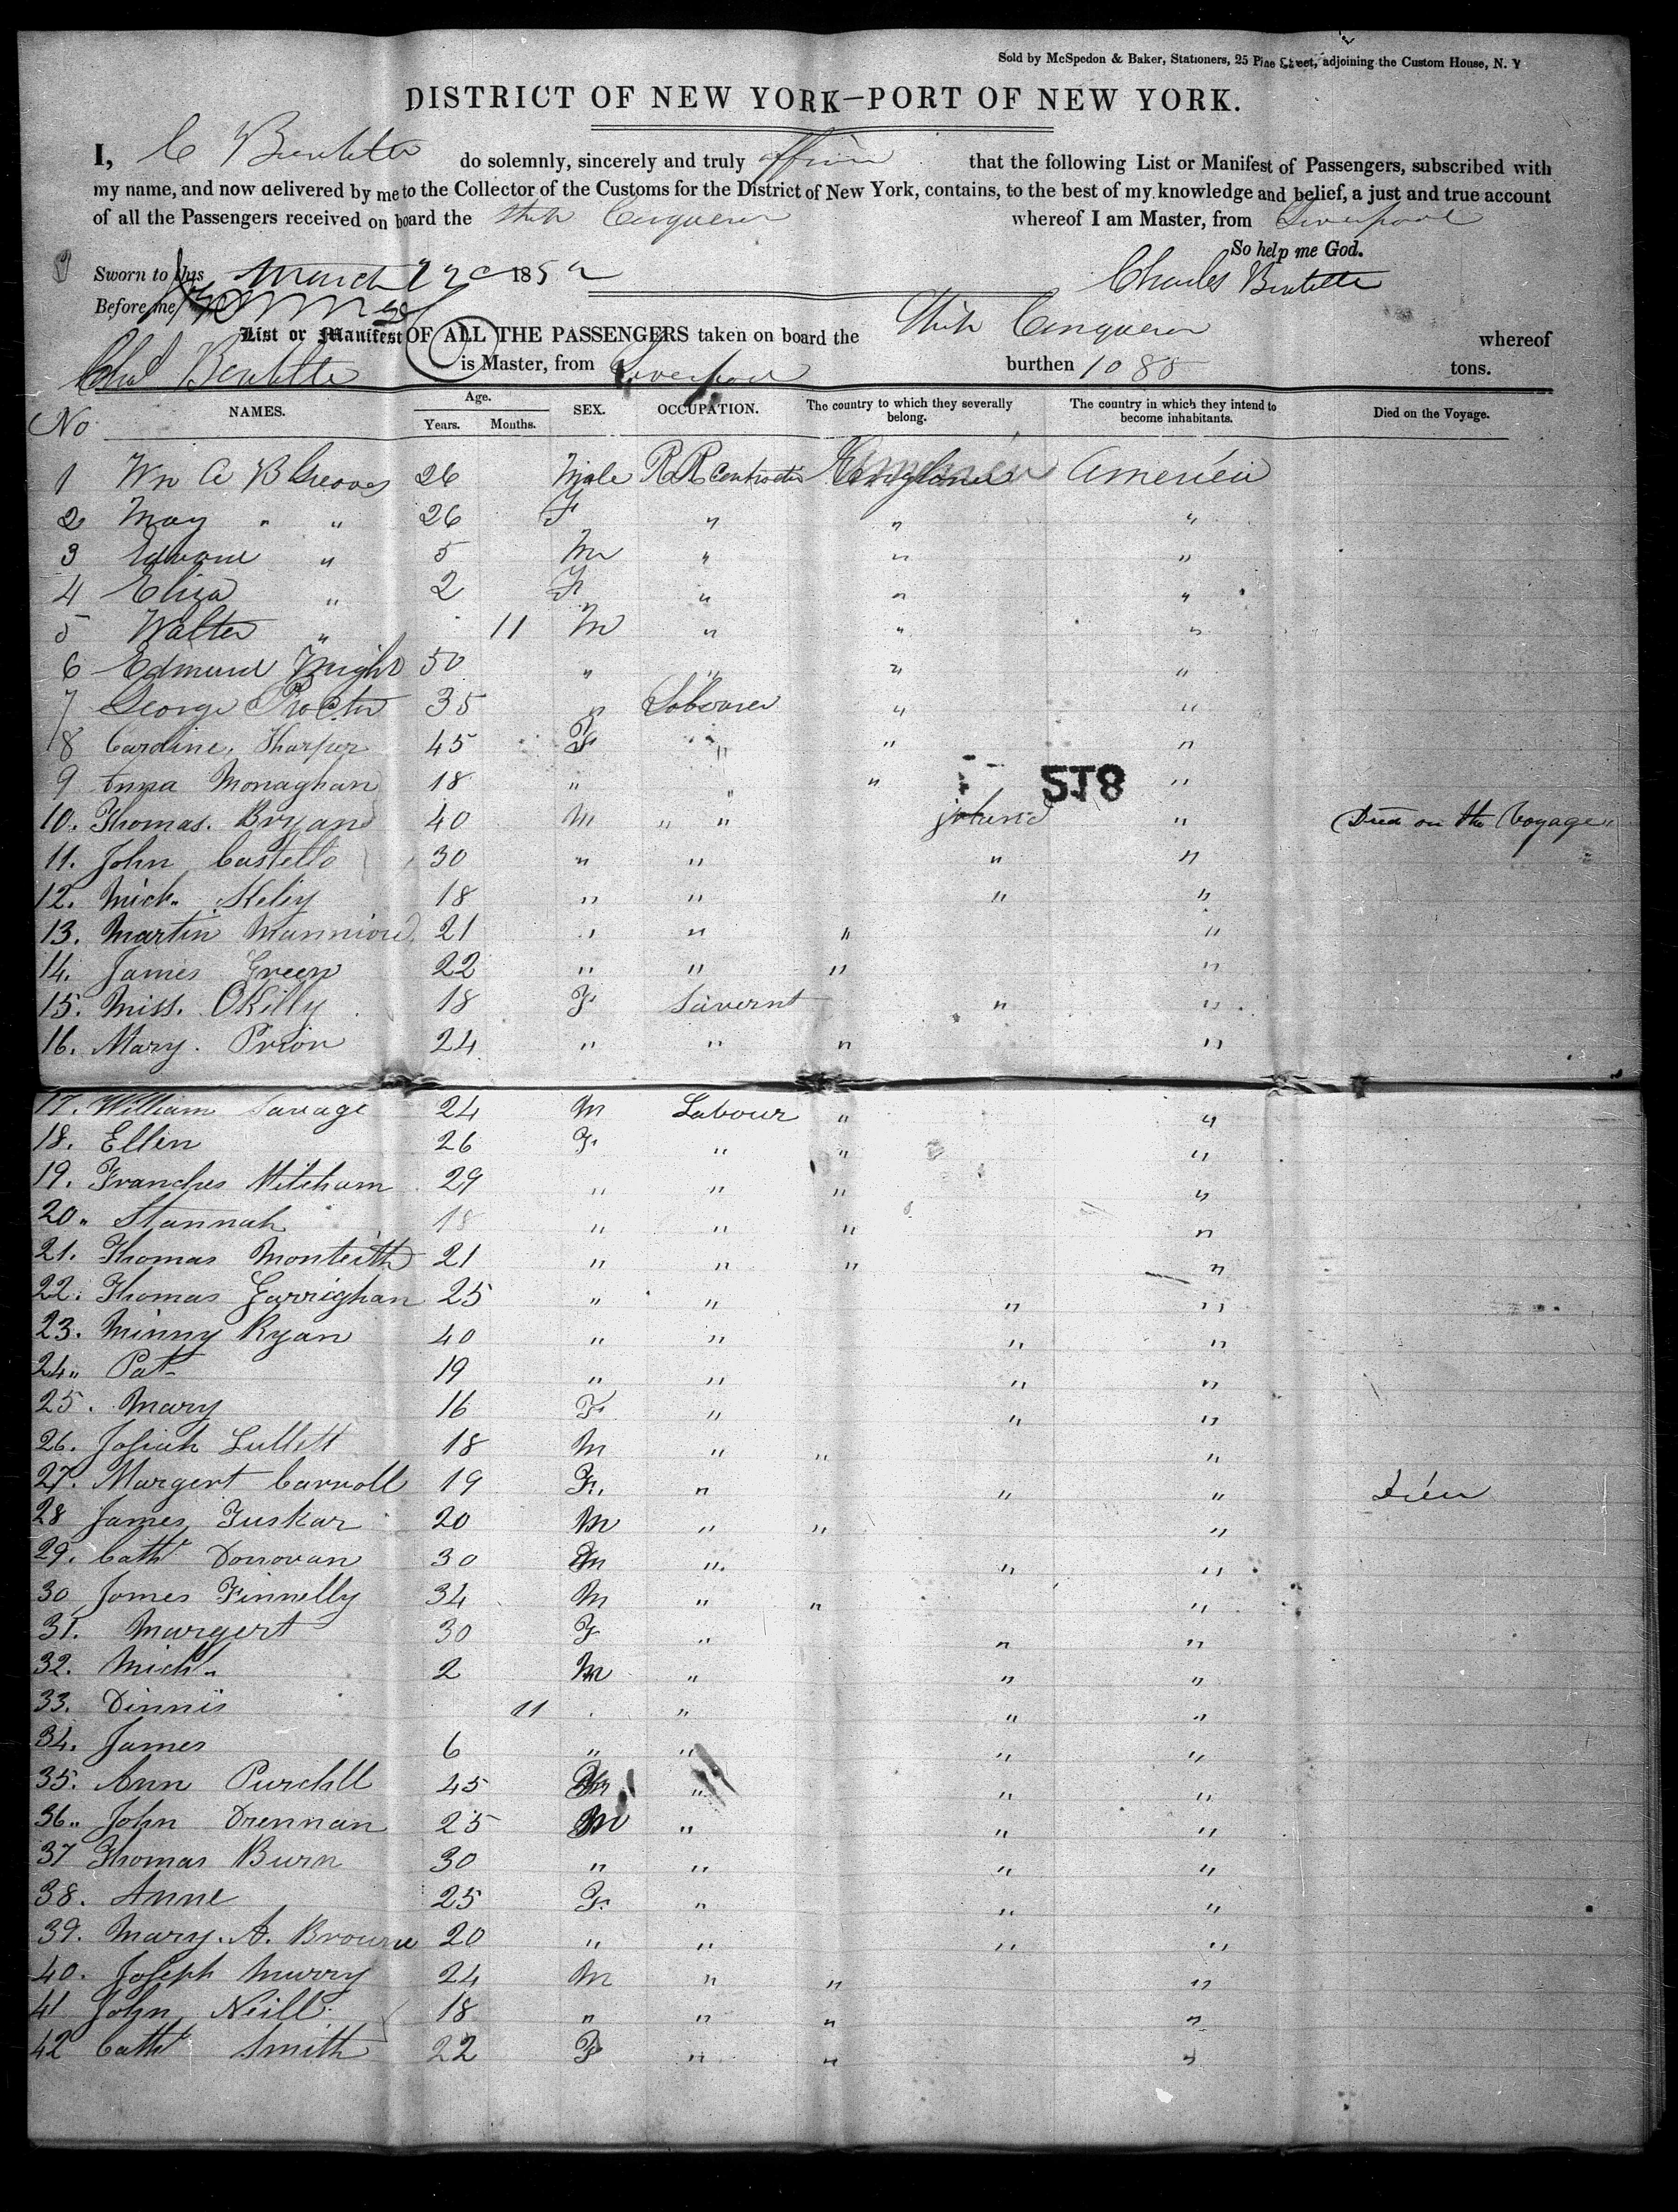 Sold by McSpedon & Baker, Stationers, 25 Pine Street, adjoining the Custom House, N. Y
DISTRICT OF NEW YORK—PORT OF NEW YORK.
I, C do solemnly, sincerely and truly affirm that the following List or Manifest of Passengers, subscribed with
my name, and now delivered by me to the Collector of the Customs for the District of New York, contains, to the best of my knowledge and belief, a just and true account
of all the Passengers received on board the whereof I am Master, from Liverpool
So help me God.
Sworn to this March 22 1852 Charles
Before me
List or Manifest OF ALL THE PASSENGERS taken on board the whereof
is Master, from Liverpool burthen 1080 tons.
No NAMES. Age. Years. Months. SEX. OCCUPATION. The country to which they severally belong. The country in which they intend to become inhabitants. Died on the Voyage.
1 Wm A B Greaves 26 Male RR Contractor America
2 May " " 26 F " " "
3 " 5 M " " "
4 Eliza " 2 F " " "
5 Walter " 11 M " " "
6 Edmund 50 " " " "
7 George Procter 35 " Labourer " "
8 Caroline Tharper 45 F " " "
9 Anna Monaghan 18 " " " "
578
10. Thomas. Bryan 40 M " " Ireland " Died on the Voyage
11. John Costello 30 " " " "
12. Mick. 18 " " " "
13. Martin Mannion 21 " " " "
14. James Green 22 " " " "
15. Miss. OKilly 18 F Savernt " "
16. Mary. Prior 24 " " " "
17. William Savage 24 M Labour " "
18. Ellen 26 F " " "
19. Franches Mitchum 29 " " " "
20. Stannah 18 " " " "
21. Thomas Monteith 21 " " " "
22. Thomas Garrighan 25 " " " "
23. Minny Ryan 40 " " " "
24. Pat 19 " " " "
25. Mary 16 F " " "
26. Josiah Lullett 18 M " " "
27. Margert Carroll 19 F. " " " Died
28 James Tuskar 20 M " " "
29. Cath Donovan 30 " " "
30 James Finnelly 34 M " " "
31. Margert 30 F " " "
32. Mich. 2 M " " "
33. Dinnis 11 " " "
34. James 6 " " " "
35. Ann Purchll 45 " " "
36. John Drennan 25 M " " "
37 Thomas Burn 30 " " " "
38. Anne 25 F. " " "
39. Mary. A. Browne 20 " " " "
40. Joseph Murry 24 M " " "
41 John Neill. 18 " " " "
42 Cath Smith 22 F " " "